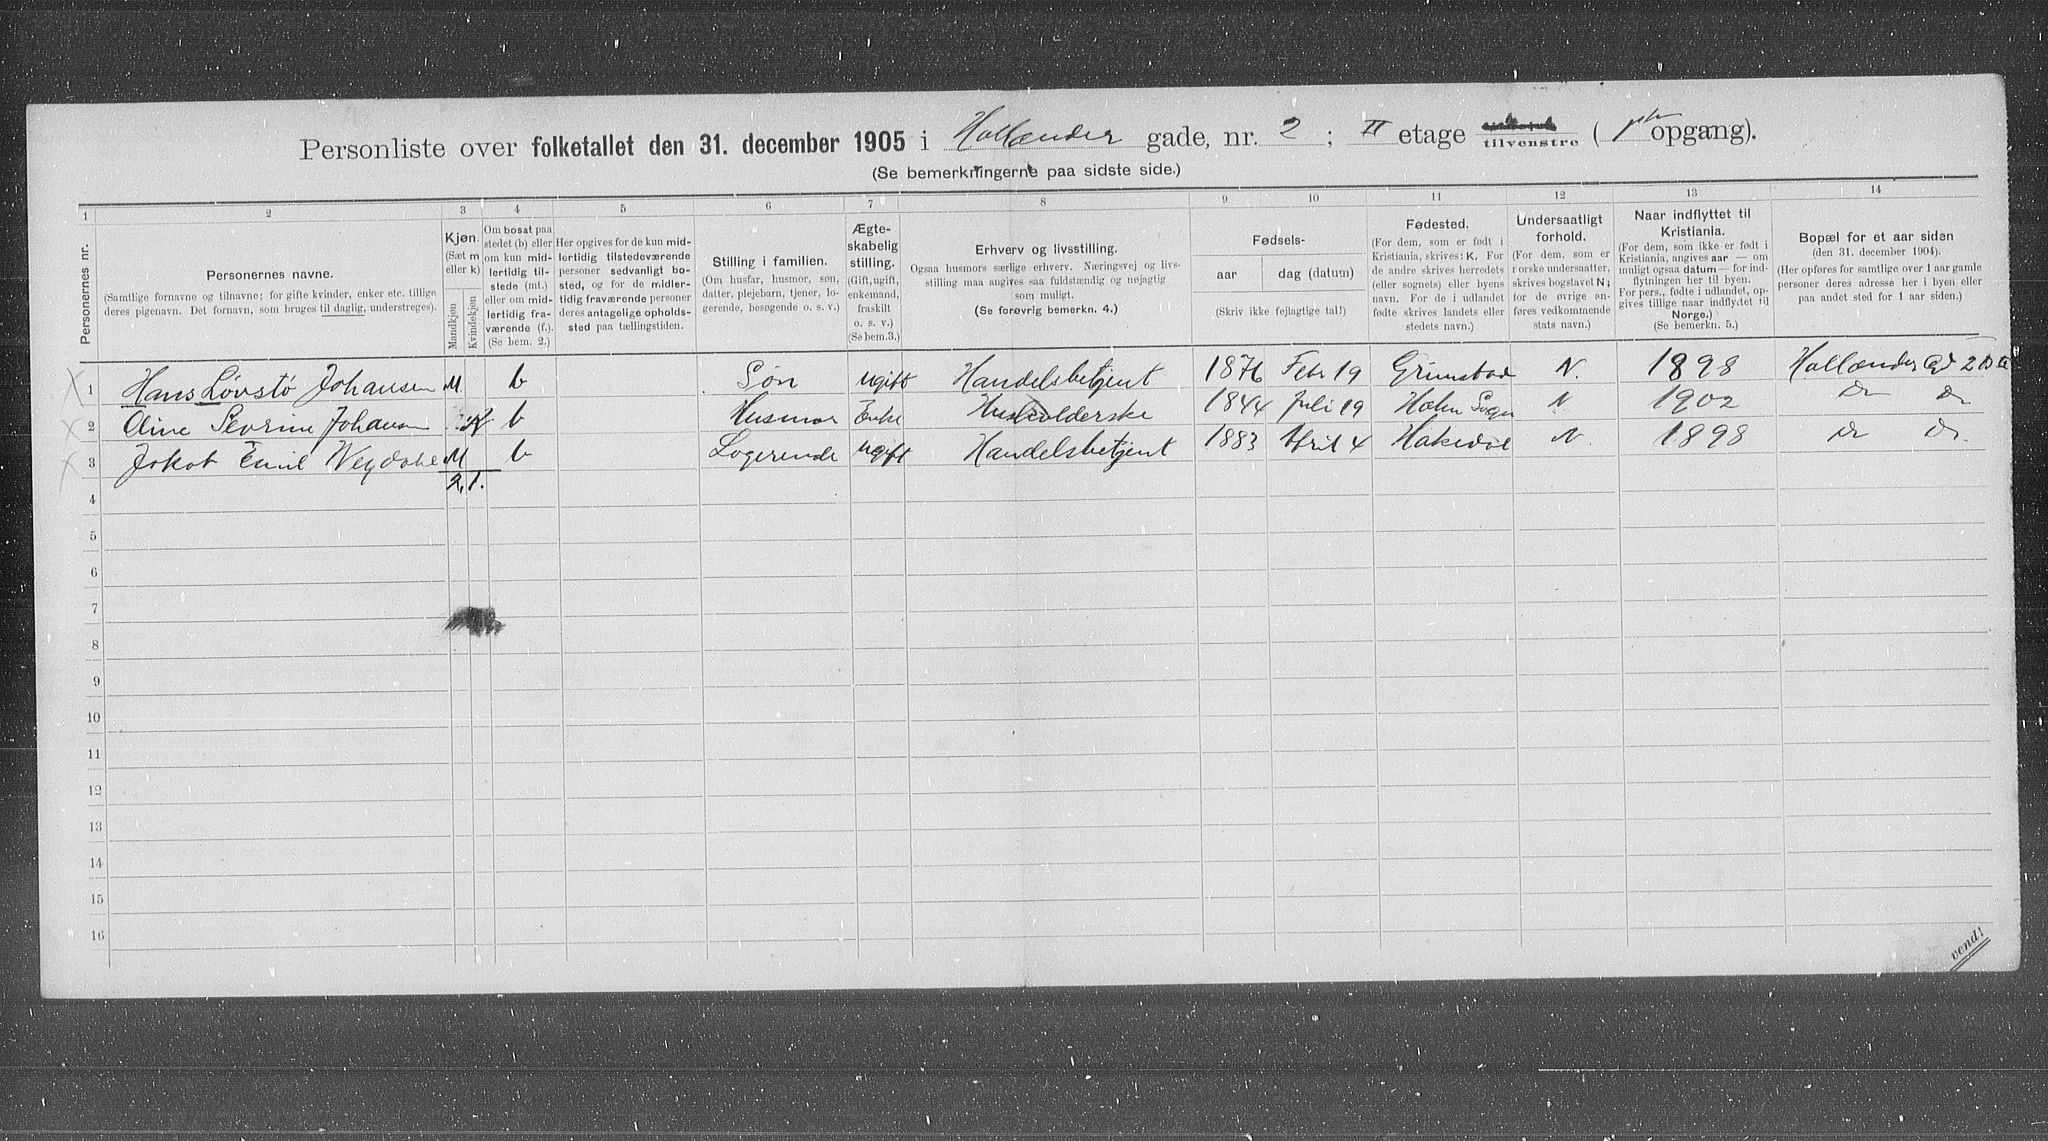 Personliste over folketallet den 31. december 1905 i Hollænder gade, nr. 2 ; II etage tilvenstre ( opgang).
(Se bemerkningerne paa sidste side.)
1 2 3 4 5 6 7 8 9 10 11 12 13 14
Personernes nr.
Personernes navne.
(Samtlige fornavne og tilnavne; for gifte kvinder, enker etc. tillige
deres pigenavn. Det fornavn, som bruges til daglig, understreges).
Kjøn.
(Sæt m
eller k)
Mandkjøn
Kvindekjøn
Om bosat paa
stedet (b) eller
om kun mid-
lertidig til-
stede (mt.)
eller om mid-
lertidig fra-
værende (f.).
(Se bem. 2.)
Her opgives for de kun mid-
lertidig tilstedeværende
personer sedvanligt bo-
sted, og for de midler-
tidig fraværende personer
deres antagelige opholds-
sted paa tællingstiden.
Stilling i familien.
(Om husfar, husmor, søn,
datter, plejebarn, tjener, lo-
gerende, besøgende o. s. v.)
Ægte-
skabelig
stilling.
(Gift, ugift,
enkemand,
fraskilt
o. s. v.)
(Se bem.3.)
Erhverv og livsstilling.
Ogsaa husmors særlige erhverv. Næringsvej og livs-
stilling maa angives saa fuldstændig og nøjagtig
som muligt.
(Se forøvrig bemerkn. 4.)
Fødsels-
aar dag (datum)
(Skriv ikke fejlagtige tal!)
Fødested.
(For dem, som er født i
Kristiania, skrives: K. For
de andre skrives herredets
(eller sognets) eller byens
navn. For de i udlandet
fødte skrives landets eller
stedets navn.)
Undersaatligt
forhold.
(For dem, som er
norske undersaatter,
skrives bogstavet N;
for de øvrige an-
føres vedkommende
stats navn.)
Naar indflyttet til
Kristiania.
(For dem, som ikke er født i
Kristiania, angives aar — om
muligt ogsaa datum — for ind-
flytningen her til byen.
For pers., fødte i udlandet, op-
gives tillige naar indflyttet til
Norge.)
(Se bemerkn. 5.)
Bopæl for et aar siden
(den 31. december 1904).
(Her opføres for samtlige over 1 aar gamle
personer deres adresse her i byen eller
paa andet sted for 1 aar siden.)
X 1 Hans Løvstø Johansen M b Søn ugift Handelsbetjent 1876 Febr 19 Grimstad N. 1898 Hollænder Gd 2
X 2 Oline Sevrine Johansen K b Husmor Enke Husholderske 1844 Juli 19 Holm Sogn N 1902 Do Do
X 3 Jakob Emil Weydahl M b Logerende ugift Handelsbetjent 1883 April 4 Hakedal N. 1898 Do Do.
4 2, 1.
5
6
7
8
9
10
11
12
13
14
15
16
vend!